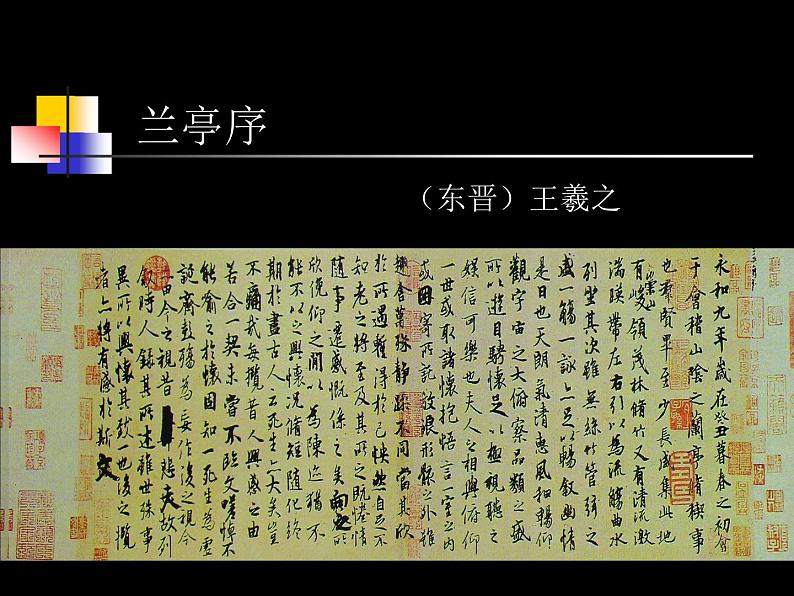 兰亭序
（东晋）王羲之
永和九年歲在癸丑暮春之初會
于會稽山陰之蘭亭脩稧事
也群賢畢至少長咸集此地
有崇山峻領茂林脩竹又有清流激
湍暎帶左右引以為流觴曲水
列坐其次雖無絲竹管弦之
盛一觴一詠亦足以暢敘幽情
是日也天朗氣清惠風和暢仰
觀宇宙之大俯察品類之盛
所以遊目騁懷足以極視聽之
娛信可樂也夫人之相與俯仰
一世或取諸懷抱悟言一室之內
或因寄所託放浪形骸之外雖
趣舍萬殊靜躁不同當其欣
於所遇蹔得於己怏然自足不
知老之將至及其所之既惓情
隨事遷感慨係之矣向之所
欣俛仰之閒以為陳迹猶不
能不以之興懷況脩短隨化終
期於盡古人云死生亦大矣豈
不痛哉每攬昔人興感之由
若合一契未嘗不臨文嗟悼不
能喻之於懷固知一死生為虛
誕齊彭殤為妄作後之視今
亦由今之視昔悲夫故列
敘時人錄其所述雖世殊事
異所以興懷其致一也後之攬
者亦將有感於斯文